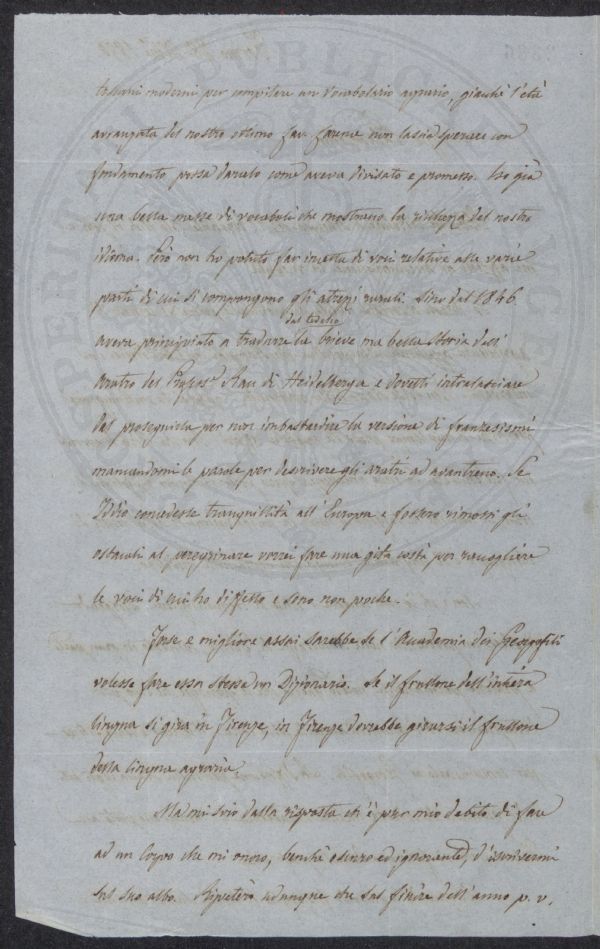 toscani moderni per compilare un Vocabolario agrario, giacchè l'età
avanzata del nostro ottimo Cav. Carena non lascia sperare con
fondamento possa darcelo come aveva divisato e promesso. Ho già
una bella massa di vocaboli che mostrano la ricchezza del nostro
idioma. Però non ho potuto far incetta di voci relative alle varie
parti di cui si compongono gli attrezzi rurali. Sino dal 1846
dal tedesco
aveva principiato a tradurre la brieve ma bella Storia dell'
aratro del Profess.r Rau di Heidelberga e dovetti intralasciare
dal proseguirla per non imbastardire la versione di franzesismi
mancandomi le parole per descrivere gli aratri ad avantreno. Se
Iddio concedesse tranquillità all'Europa e fossero rimossi gli
ostacoli al peregrinare vorrei fare una gita costà per raccogliere
le voci di cui ho difetto e sono non poche.
Forse e migliore assai sarebbe se l'Accademia dei Georgofili
volesse fare essa stessa un Dizionario. Se il frullone dell'intera
lingua si gira in Firenze, in Firenze dovrebbe girarsi il frullone
della lingua agraria.
Ma mi svio dalla risposta ch'è pur mio debito di fare
ad un Corpo che mi onorò, benchè oscuro ed ignorante, d'iscrivermi
sul suo albo. Ripeterò adunque che sul finire dell'anno p. v.